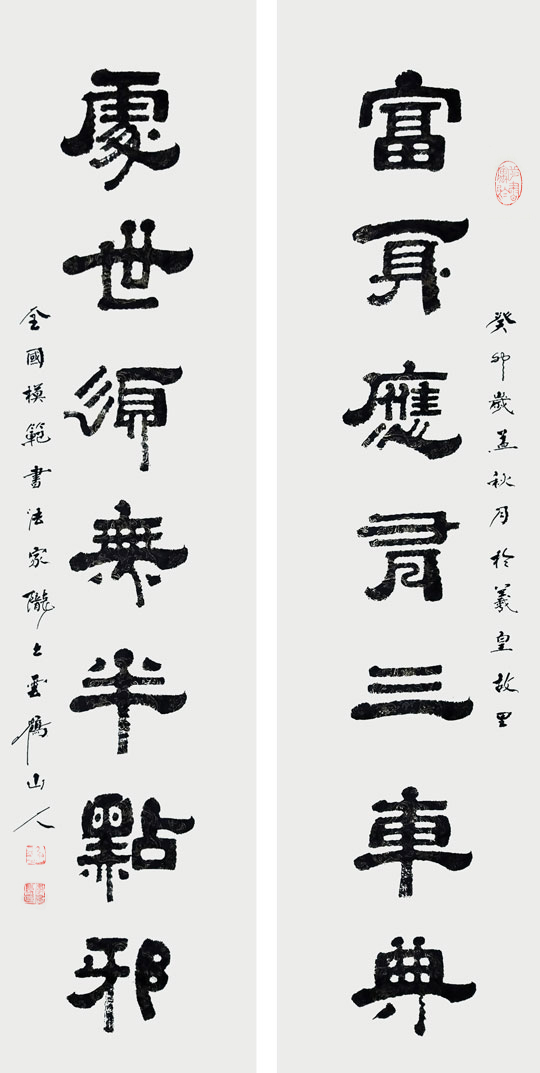 癸卯歲孟秋月於羲皇故里
富身應有三車典
處世須無半點邪
全國模範書法家隴上雲鶴山人